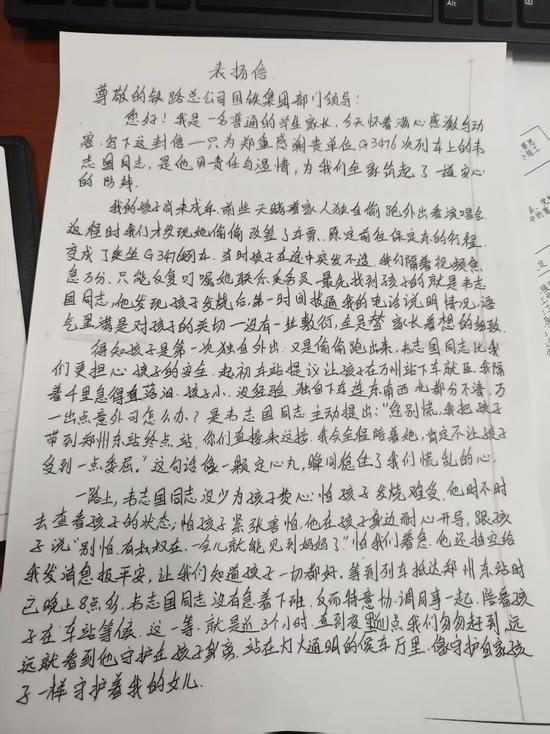 表扬信
尊敬的铁路总公司国铁集团部门领导：
您好！我是一名普通的学生家长，今天怀着满心感激与动
容，写下这封信—只为郑重感谢贵单位G3476次列车上的韦
志国同志，是他用责任与温情，为我们全家筑起了一道安心
的防线
我的孩子尚未成年，前些天瞒着家人独自偷跑外出看演唱会
返程时我们才发现她偷偷改签了车票，原定前往保定东的行程，
变成了乘坐G3476列车。当时孩子在途中突发不适，我们隔着视频焦
急万分，只能反复叮嘱她联系乘务员。最先找到孩子的就是韦志
国同志，他发现孩子发烧后，第一时间拨通我的电话说明情况，语
气里满是对孩子的关切—没有一丝敷衍，全是替家长着想的细致
得知孩子是第一次独自外出，又是偷偷跑出来，韦志国同志比我
们更担心孩子的安全。起初车站提议让孩子在万州站下车就医，我隔
着千里急得直落泪，孩子小、没经验，独自下车连东南西北都分不清，万
一出点意外可怎么办？是韦志国同志主动提出：“您别慌，我把孩子
带到郑州东站终点站，你们直接来这接，我会全程陪着她，肯定不让孩子
受到一点委屈。”这句话像一颗定心丸，瞬间稳住了我们慌乱的心。
一路上，韦志国同志没少为孩子费心：怕孩子发烧难受，他时不时
去查看孩子的状态；怕孩子紧张害怕，他在孩子身边耐心开导，跟孩
子说“别怕，有叔叔在，一会儿就能见到妈妈了”怕我们着急，他还抽空给
我发消息报平安，让我们知道孩子一切都好。等到列车抵达郑州东站时
已晚上8点多，韦志国同志没有急着下班，反而特意协调同事一起，陪着孩
子在车站等候。这一等，就是近3个小时，直到夜里点我们匆匆赶到，远
远就看到他守护在孩子身旁，站在灯火通明的候车厅里，像守护自家孩
子一样守护着我的女儿．
Alt
Ctrl